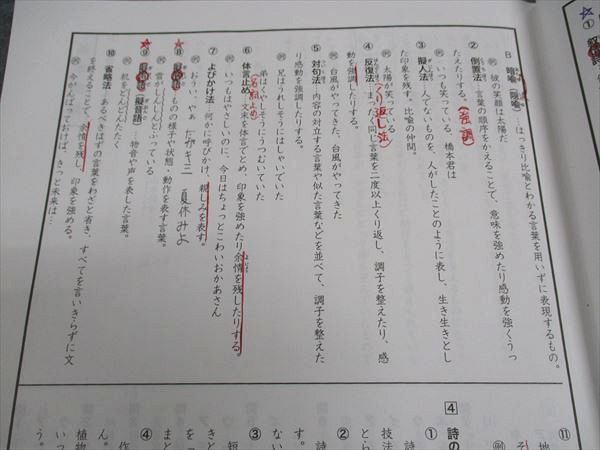 B 暗喩(隠喩)…はっきり比喩とわかる言葉を用いずに表現するもの。
例 彼の笑顔は太陽だ
② 倒置法…言葉の順序をかえることで、意味を強めたり感動を強くうっ
たえたりする。(強調)
例 いつも笑っている、橋本君は
③ 擬人法…人でないものを、人がしたことのように表し、生き生きとし
た印象を残す。比喩の仲間。
例 太陽が笑っている
くり返し法
④ 反復法…まったく同じ言葉を二度以上くり返し、調子を整えたり、感
動を強調したりする。
例 台風がやってきた、台風がやってきた
⑤ 対句法…内容の対立する言葉や似た言葉などを並べて、調子を整えた
り感動を強調したりする。
例 兄はうれしそうにはしゃいでいた
弟はくやしそうにうつむいていた
(名詞止め)
⑥ 体言止め…文末を体言でとめ、印象を強めたり余情を残したりする。
例 いつもはやさしいのに、今日はちょっとこわいおかあさん
⑦ よびかけ法…何かに呼びかけ、親しみを表す。
例 おうい、やぁ
夏休みよ
⑧ …ものの様子や状態、動作を表す言葉。
例 雪がしんしんとふっている
⑨ (擬音語)…物音や声を表した言葉。
例 机をどんどんたたく
⑩ 省略法…あるべきはずの言葉をわざと省き、すべてを言いきらずに文
を終えることで、余情を残し、印象を強める。
例 今がんばっておけば、きっと未来は…
⑪
地
例 そ
4 詩の
① 詩
技法
とら
② 詩
す。
ない
③ 短
きと
まと
④ 作
ん。
植物
いつ
う。